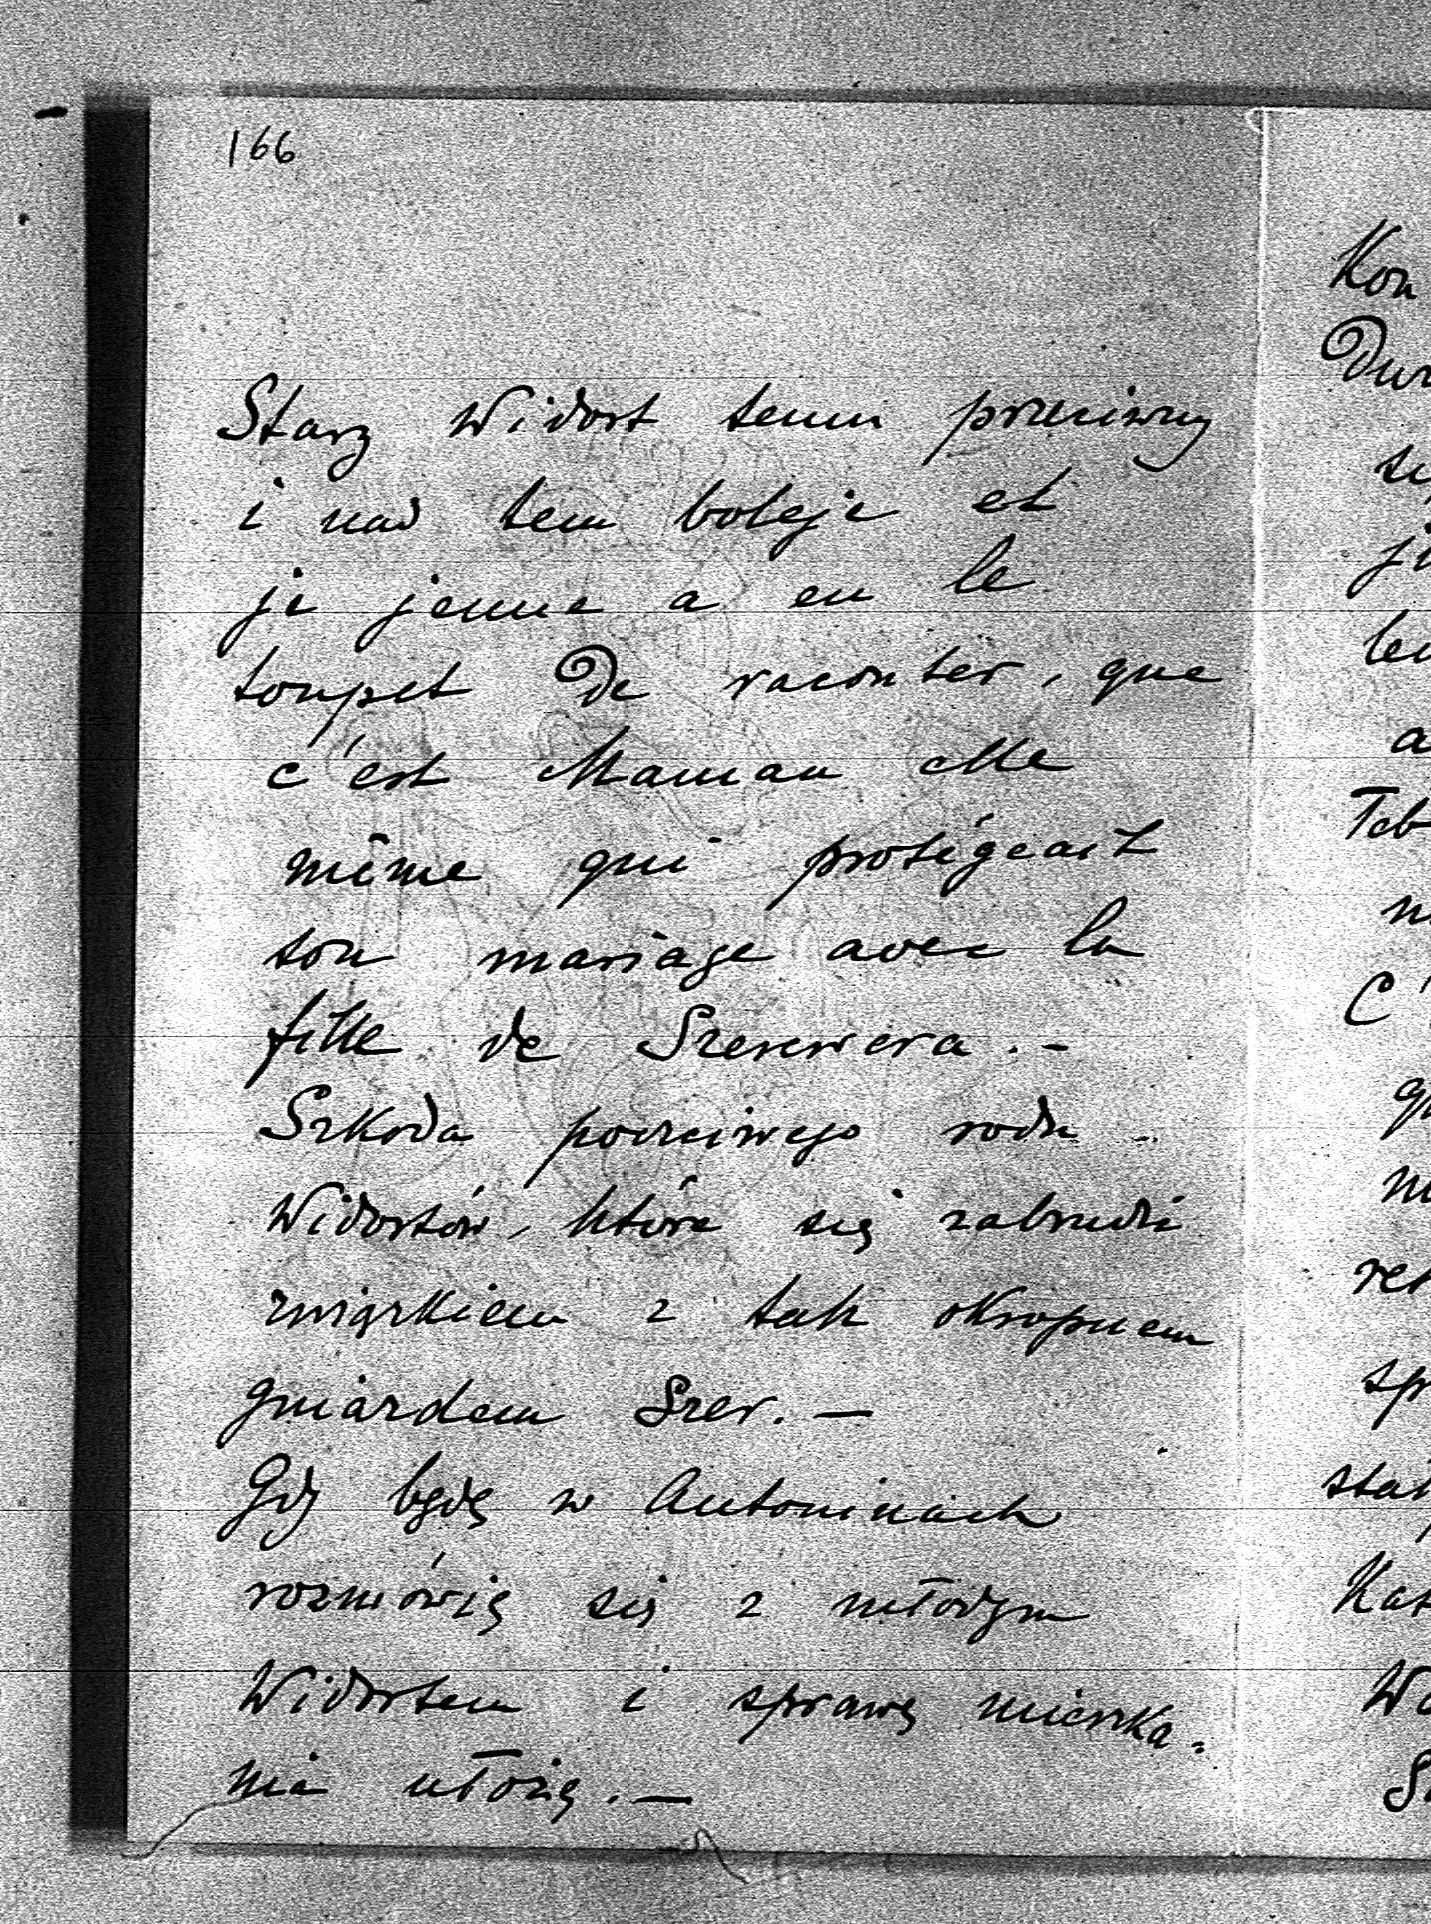 166
Stary Widort temu przeciwny
i nad tem boleje et
je jeune a eu le
toupet de raconter, que
c'est Maman elle
même qui protégeait
son mariage avec la
fille de Szerewera. -
Szkoda poczciwego rodu
Widortów, które się zabrudzi
związkiem z tak okropnem
gniazdem Szer. —
Gdy będę w Antoninach
rozmówię się z młodym
Widortem i sprawę mieszka-
nia ułożę. —
Kon